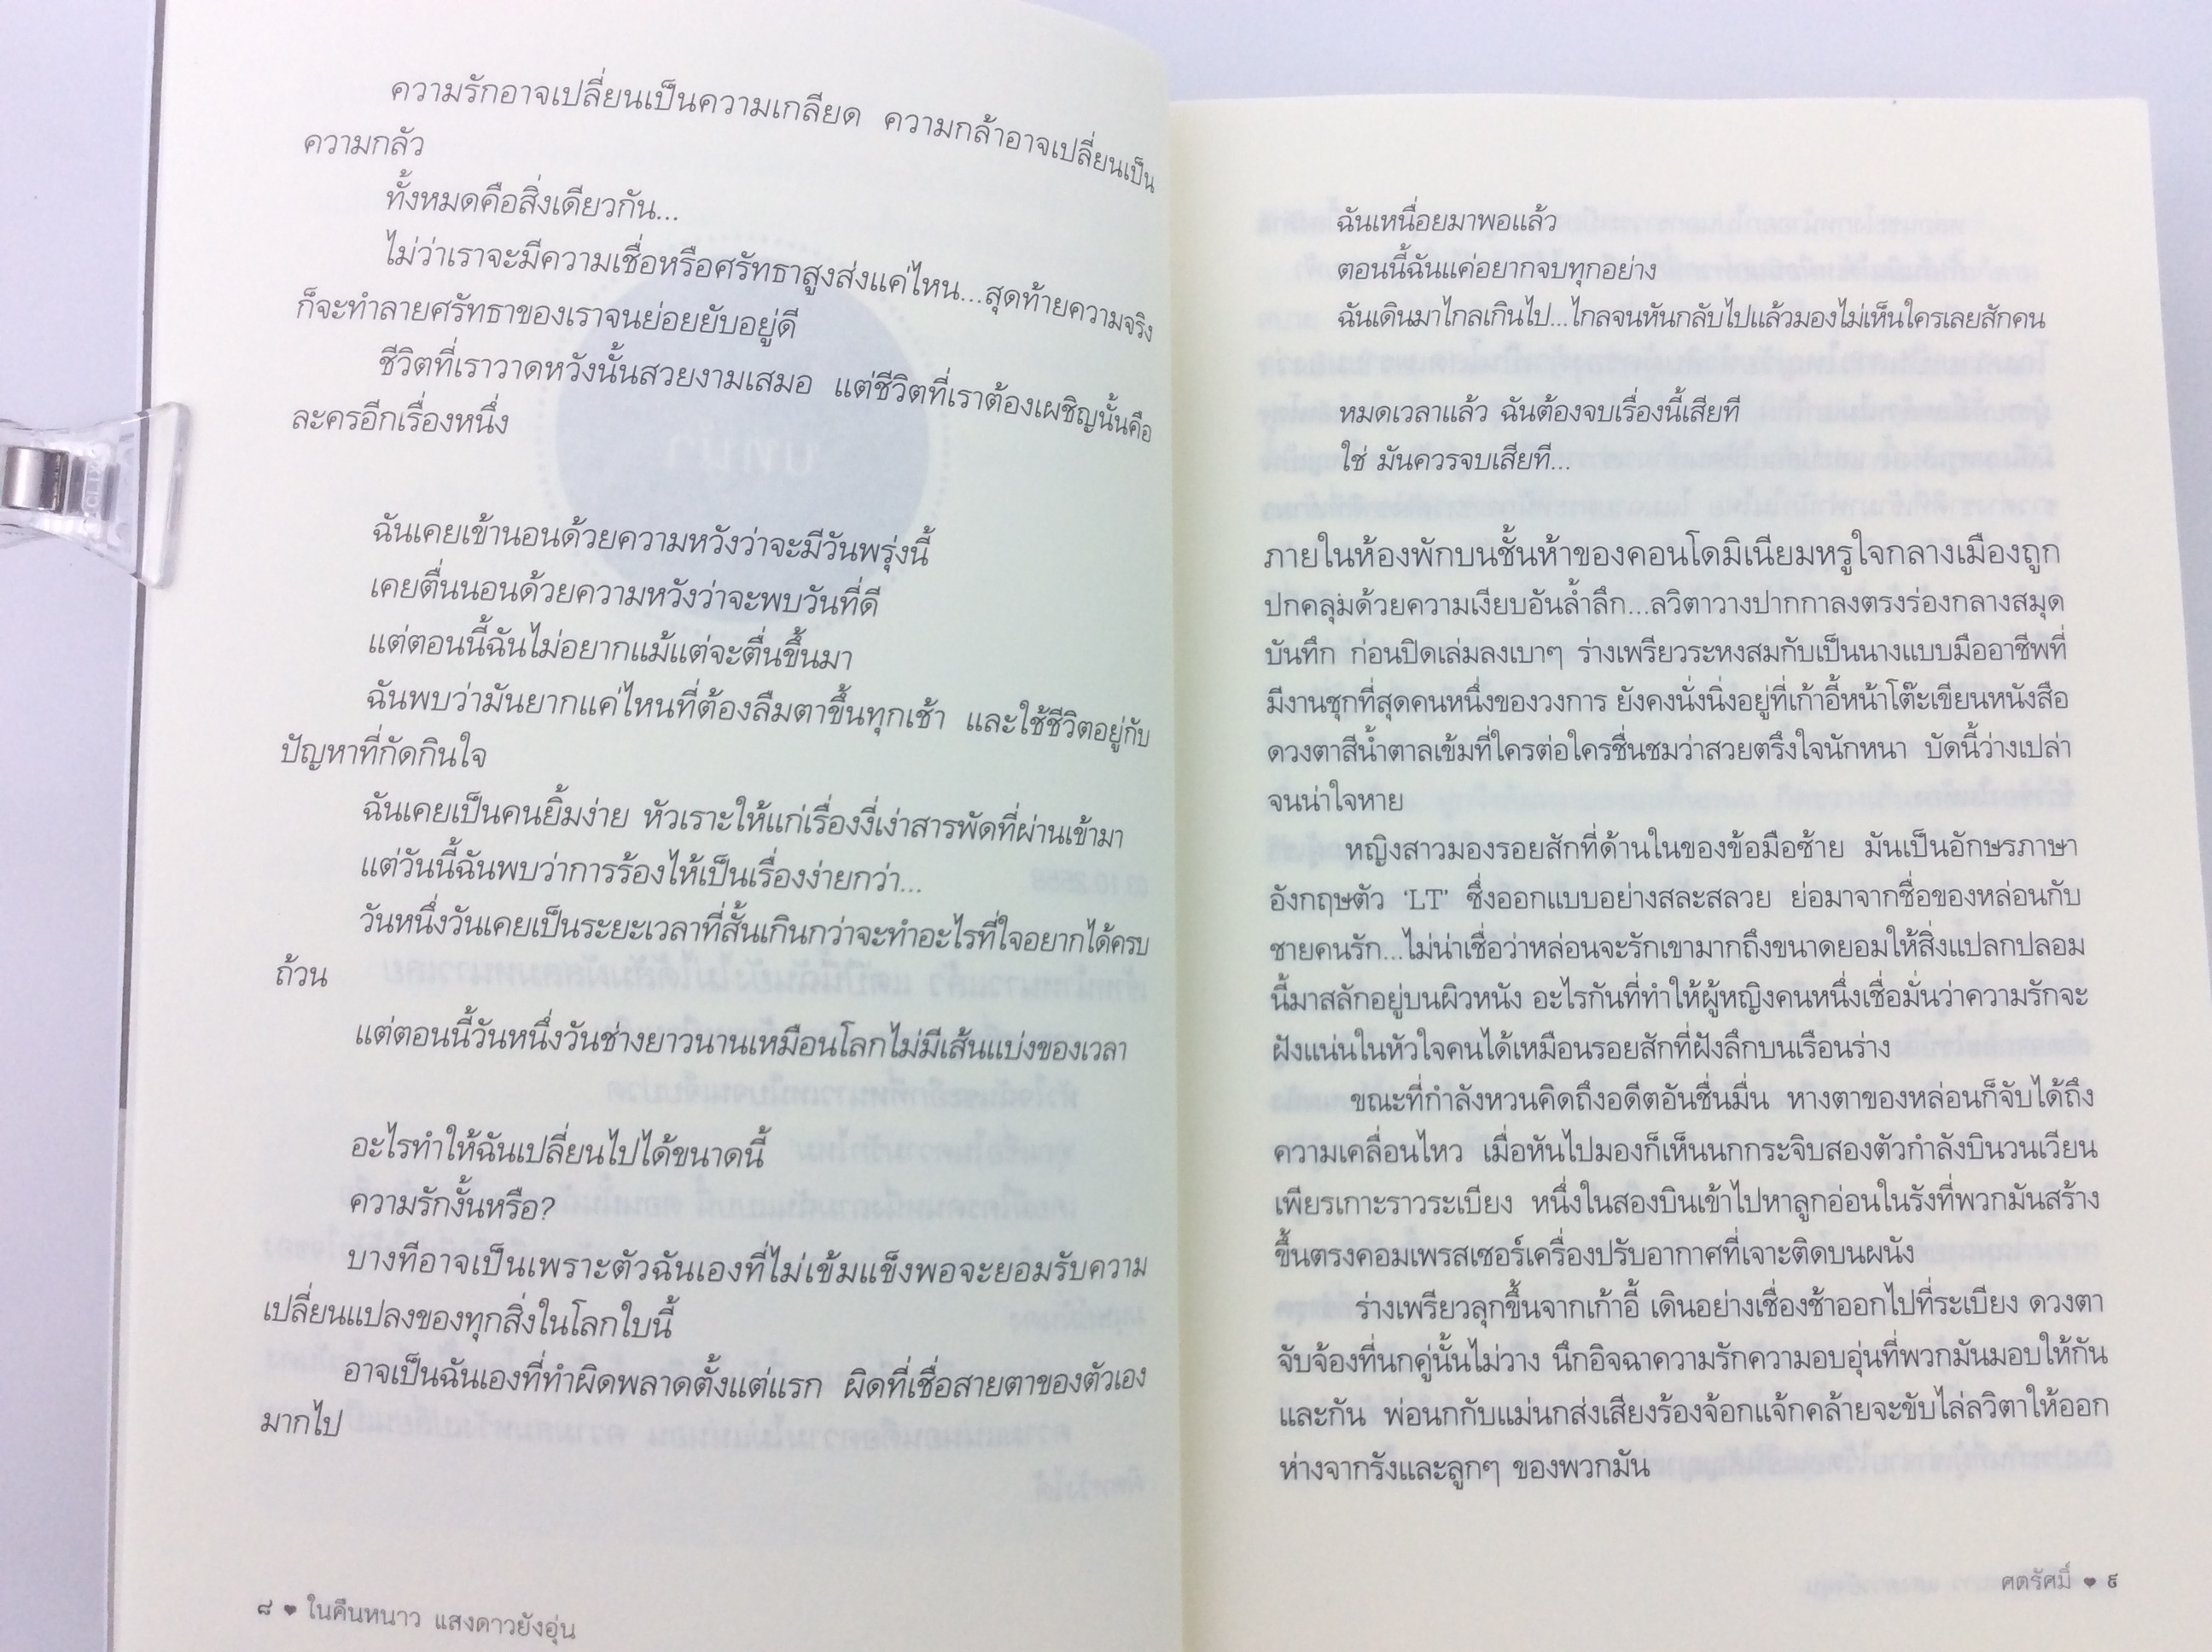 ความรักอาจเปลี่ยนเป็นความเกลียด ความกล้าอาจเปลี่ยนเป็น
ความกลัว
ทั้งหมดคือสิ่งเดียวกัน...
ไม่ว่าเราจะมีความเชื่อหรือศรัทธาสูงส่งแค่ไหน...สุดท้ายความจริง
ก็จะทำลายศรัทธาของเราจนย่อยยับอยู่ดี
ชีวิตที่เราวาดหวังนั้นสวยงามเสมอ แต่ชีวิตที่เราต้องเผชิญนั้นคือ
ละครอีกเรื่องหนึ่ง
ฉันเคยเข้านอนด้วยความหวังว่าจะมีวันพรุ่งนี้
เคยตื่นนอนด้วยความหวังว่าจะพบวันที่ดี
แต่ตอนนี้ฉันไม่อยากแม้แต่จะตื่นขึ้นมา
ฉันพบว่ามันยากแค่ไหนที่ต้องลืมตาขึ้นทุกเช้า และใช้ชีวิตอยู่กับ
ปัญหาที่กัดกินใจ
ฉันเคยเป็นคนยิ้มง่าย หัวเราะให้แก่เรื่องงี่เง่าสารพัดที่ผ่านเข้ามา
แต่วันนี้ฉันพบว่าการร้องไห้เป็นเรื่องง่ายกว่า...
วันหนึ่งวันเคยเป็นระยะเวลาที่สั้นเกินกว่าจะทำอะไรที่ใจอยากได้ครบ
ถ้วน
แต่ตอนนี้วันหนึ่งวันช่างยาวนานเหมือนโลกไม่มีเส้นแบ่งของเวลา
อะไรทำให้ฉันเปลี่ยนไปได้ขนาดนี้
ความรักงั้นหรือ?
บางทีอาจเป็นเพราะตัวฉันเองที่ไม่เข้มแข็งพอจะยอมรับความ
เปลี่ยนแปลงของทุกสิ่งในโลกใบนี้
อาจเป็นฉันเองที่ทำผิดพลาดตั้งแต่แรก ผิดที่เชื่อสายตาของตัวเอง
มากไป
๘ ♥ ในคืนหนาว แสงดาวยังอุ่น
ฉันเหนื่อยมาพอแล้ว
ตอนนี้ฉันแค่อยากจบทุกอย่าง
ฉันเดินมาไกลเกินไป...ไกลจนหันกลับไปแล้วมองไม่เห็นใครเลยสักคน
หมดเวลาแล้ว ฉันต้องจบเรื่องนี้เสียที
ใช่ มันควรจบเสียที...
ภายในห้องพักบนชั้นห้าของคอนโดมิเนียมหรูใจกลางเมืองถูก
ปกคลุมด้วยความเงียบอันล้ำลึก...ลวิตาวางปากกาลงตรงร่องกลางสมุด
บันทึก ก่อนปิดเล่มลงเบาๆ ร่างเพรียวระหงสมกับเป็นนางแบบมืออาชีพที่
มีงานชุกที่สุดคนหนึ่งของวงการ ยังคงนั่งนิ่งอยู่ที่เก้าอี้หน้าโต๊ะเขียนหนังสือ
ดวงตาสีน้ำตาลเข้มที่ใครต่อใครชื่นชมว่าสวยตรึงใจนักหนา บัดนี้ว่างเปล่า
จนน่าใจหาย
หญิงสาวมองรอยสักที่ด้านในของข้อมือซ้าย มันเป็นอักษรภาษา
อังกฤษตัว ‘LT’ ซึ่งออกแบบอย่างสละสลวย ย่อมาจากชื่อของหล่อนกับ
ชายคนรัก...ไม่น่าเชื่อว่าหล่อนจะรักเขามากถึงขนาดยอมให้สิ่งแปลกปลอม
นี้มาสลักอยู่บนผิวหนัง อะไรกันที่ทำให้ผู้หญิงคนหนึ่งเชื่อมั่นว่าความรักจะ
ฝังแน่นในหัวใจคนได้เหมือนรอยสักที่ฝังลึกบนเรือนร่าง
ขณะที่กำลังหวนคิดถึงอดีตอันชื่นมื่น หางตาของหล่อนก็จับได้ถึง
ความเคลื่อนไหว เมื่อหันไปมองก็เห็นนกกระจิบสองตัวกำลังบินวนเวียน
เพียรเกาะราวระเบียง หนึ่งในสองบินเข้าไปหาลูกอ่อนในรังที่พวกมันสร้าง
ขึ้นตรงคอมเพรสเซอร์เครื่องปรับอากาศที่เจาะติดบนผนัง
ร่างเพรียวลุกขึ้นจากเก้าอี้ เดินอย่างเชื่องช้าออกไปที่ระเบียง ดวงตา
จับจ้องที่นกคู่นั้นไม่วาง นึกอิจฉาความรักความอบอุ่นที่พวกมันมอบให้กัน
และกัน พ่อนกกับแม่นกส่งเสียงร้องจ้อกแจ้กคล้ายจะขับไล่ลวิตาให้ออก
ห่างจากรังและลูกๆ ของพวกมัน
ศตรัศมิ์ ♥ ๙